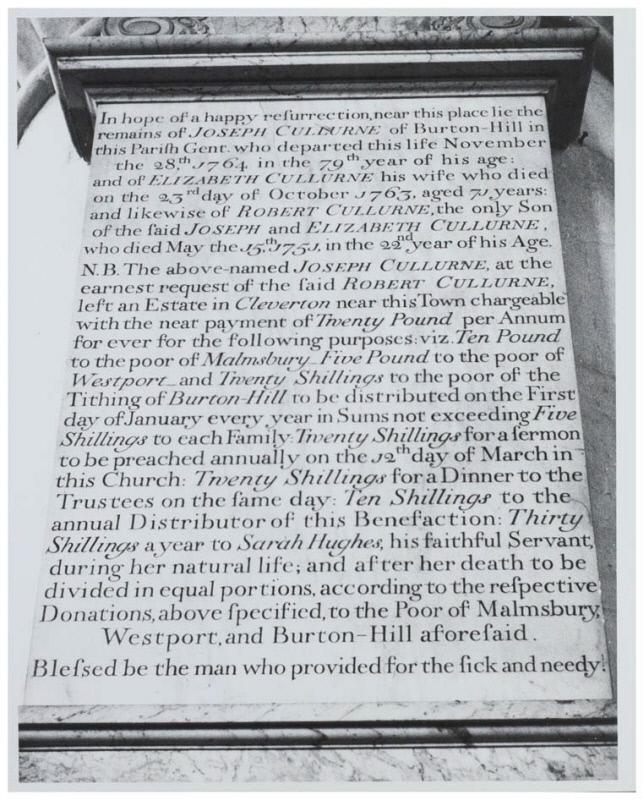 In hope of a happy reſurrection, near this place lie the
remains of JOSEPH CULLURNE of Burton-Hill in
this Pariſh Gent. who departed this life November
the 28,th 1764 in the 79th year of his age:
and of ELIZABETH CULLURNE his wife who died
on the 23rd day of October 1763, aged 71 years:
and likewise of ROBERT CULLURNE, the only Son
of the ſaid JOSEPH and ELIZABETH CULLURNE,
who died May the 15,th 1751, in the 22nd year of his Age.
N.B. The above-named JOSEPH CULLURNE, at the
earnest request of the ſaid ROBERT CULLURNE,
left an Estate in Cleverton near this Town chargeable
with the neat payment of Twenty Pound per Annum
for ever for the following purposes: viz. Ten Pound
to the poor of Malmsbury_Five Pound to the poor of
Westport_and Twenty Shillings to the poor of the
Tithing of Burton-Hill to be distributed on the First
day of January every year in Sums not exceeding Five
Shillings to each Family: Twenty Shillings for a ſermon
to be preached annually on the 12th day of March in
this Church: Twenty Shillings for a Dinner to the
Trustees on the ſame day: Ten Shillings to the
annual Distributor of this Benefaction: Thirty
Shillings a year to Sarah Hughes, his faithful Servant,
during her natural life; and after her death to be
divided in equal portions, according to the reſpective
Donations, above ſpecified, to the Poor of Malmsbury,
Westport, and Burton-Hill aforeſaid.
Bleſsed be the man who provided for the ſick and needy!